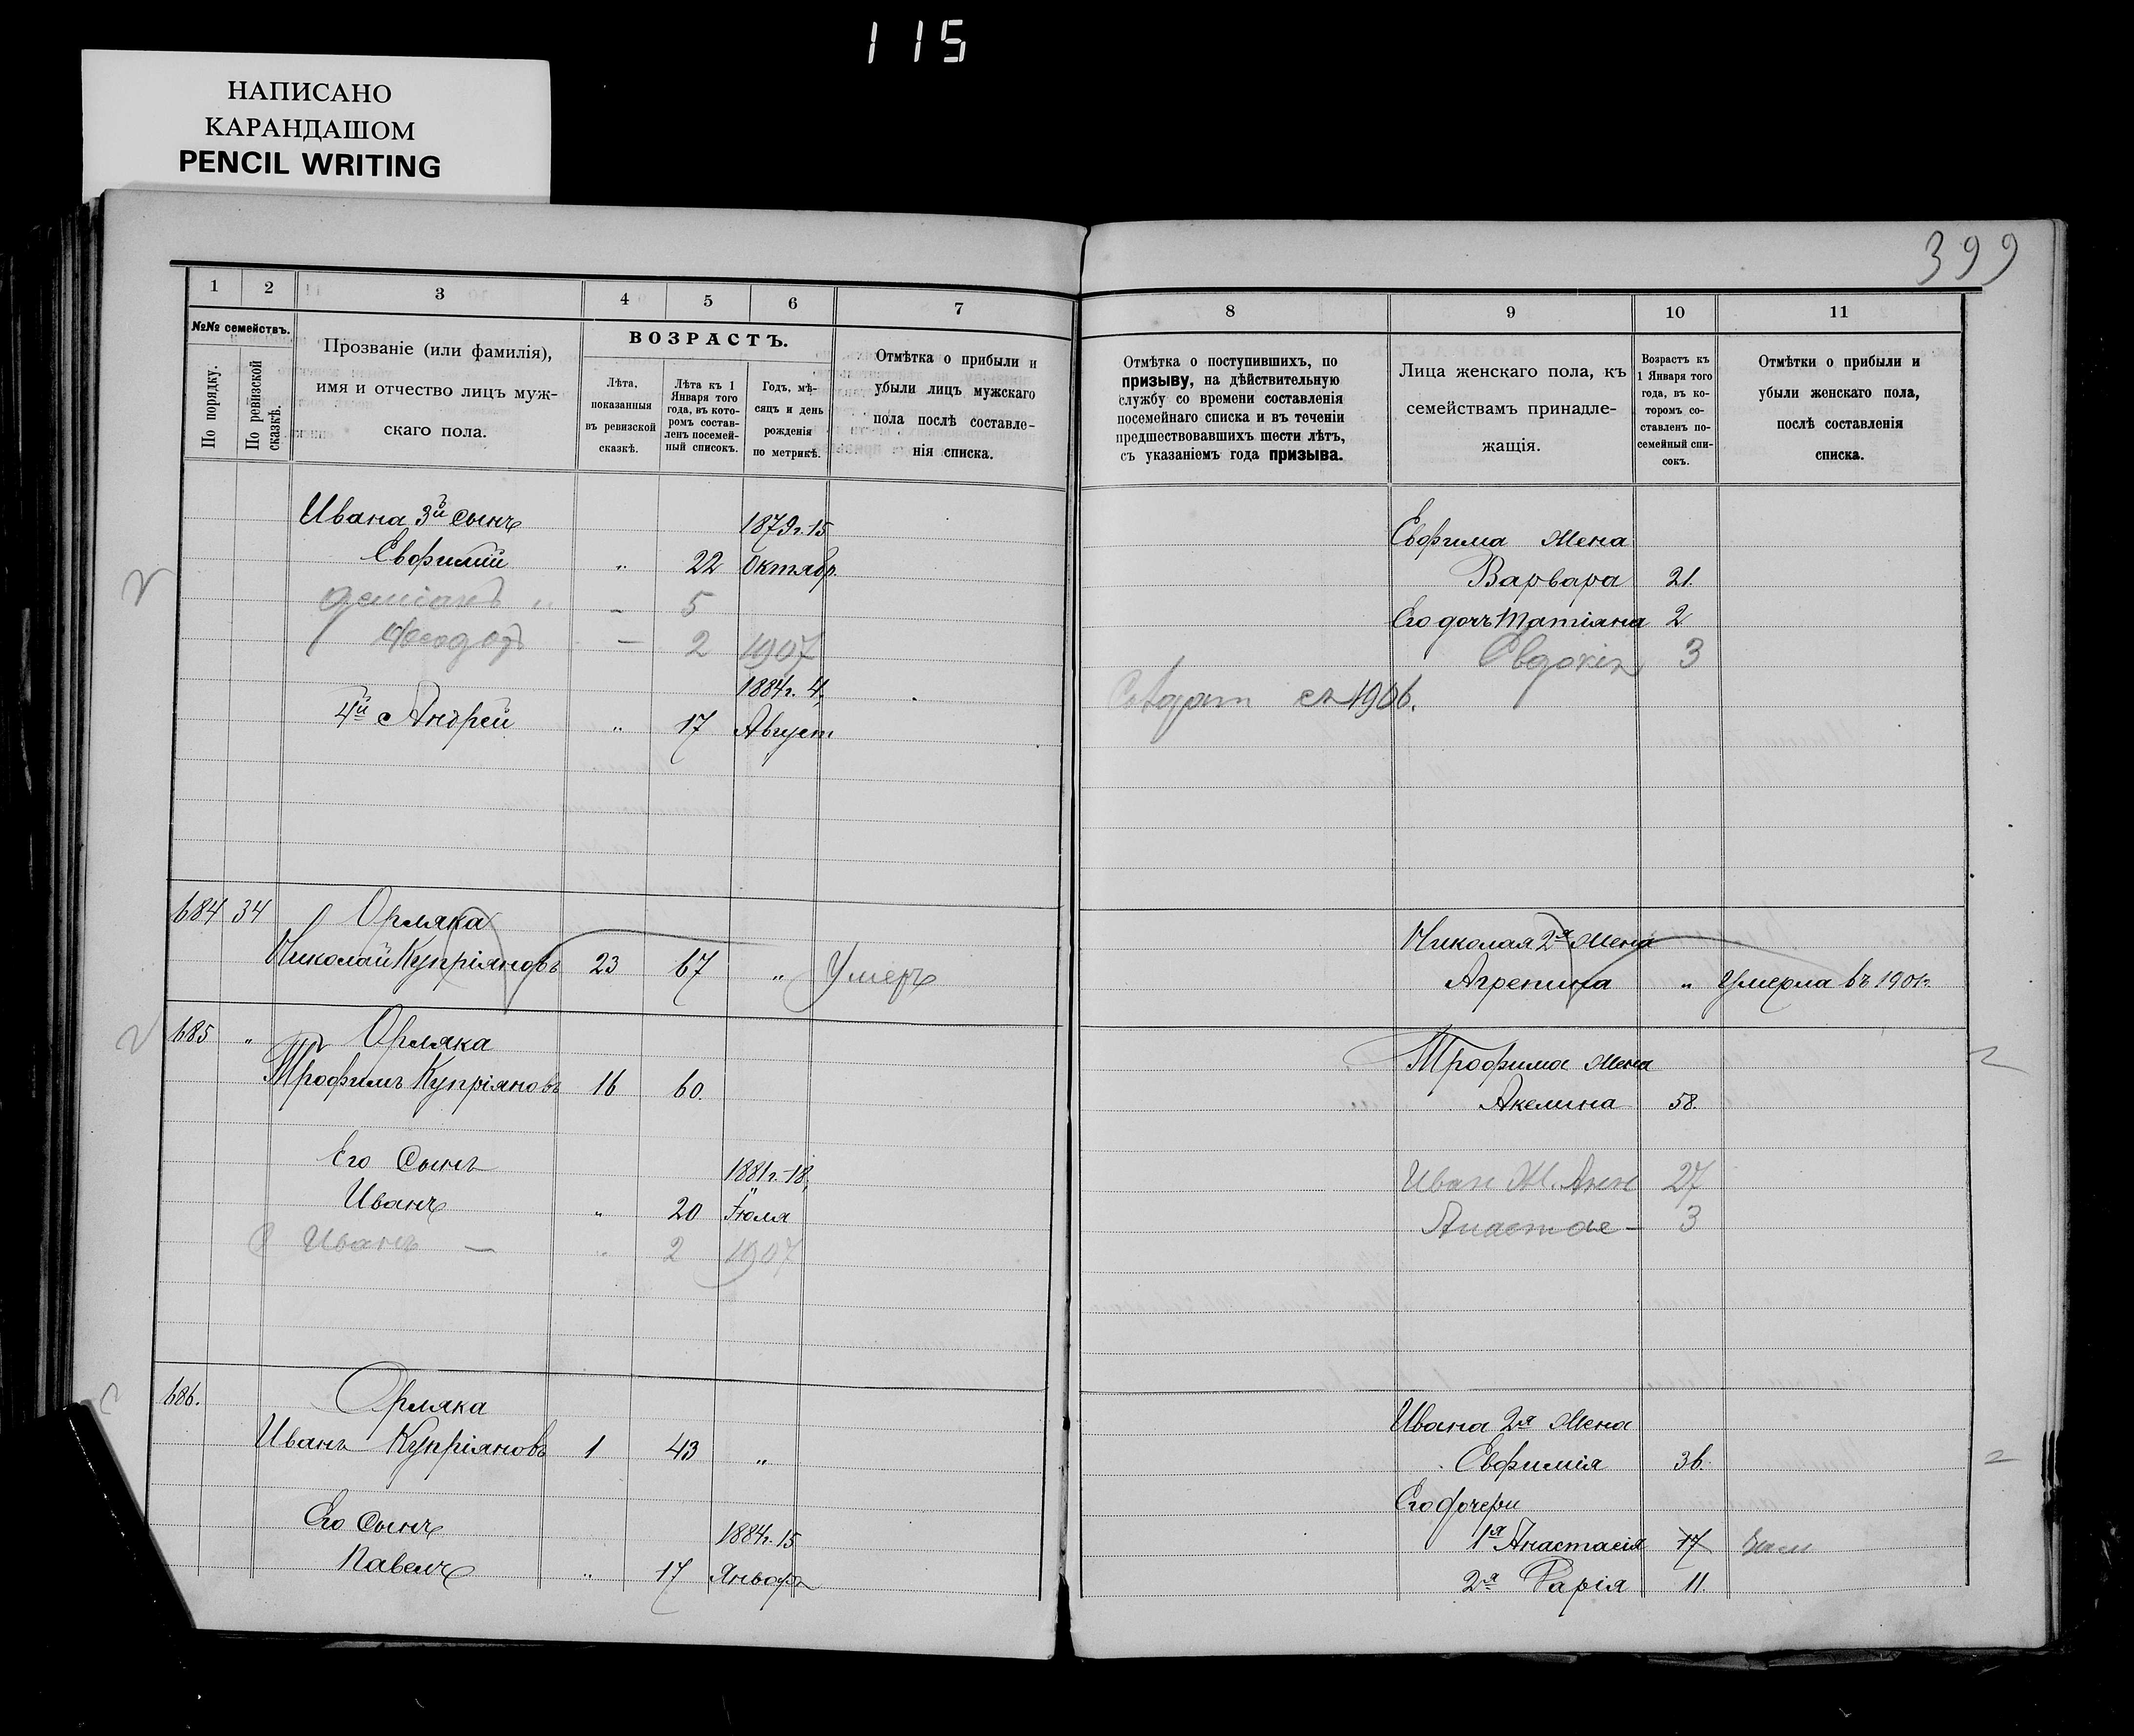 115
НАПИСАНО
КАРАНДАШОМ
PENCIL WRITING
399
1 2 3 4 5 6 7
№№ семействъ.
По порядку.
По ревизской сказкѣ.
Прозваніе (или фамилія),
имя и отчество лицъ муж-
скаго пола.
ВОЗРАСТЪ.
Лѣта,
показанныя
въ ревизской
сказкѣ.
Лѣта къ 1
Января того
года, въ кото-
ромъ состав-
ленъ посемей-
ный списокъ.
Годъ, мѣ-
сяцъ и день
рожденія
по метрикѣ.
Отмѣтка о прибыли и
убыли лицъ мужскаго
пола послѣ составле-
нія списка.
8 9 10 11
Отмѣтка о поступившихъ, по
призыву, на дѣйствительную
службу со времени составленія
посемейнаго списка и въ теченіи
предшествовавшихъ шести лѣтъ,
съ указаніемъ года призыва.
Лица женскаго пола, къ
семействамъ принадле-
жащія.
Возрастъ къ
1 Января того
года, въ ко-
торомъ со-
ставленъ по-
семейный спи-
сокъ.
Отмѣтки о прибыли и
убыли женскаго пола,
послѣ составленія
списка.
Ивана 3й сынъ 1879г. 15
Евфимій " 22 Октябр.
5
Ѳеодор — 2 1907
1884г. 4
4й Андрей " 17 Август
Евфима жена
Варвара 21.
Его дочь Татіяна 2
Евдокія 3
Солдат съ 1906.
684 34 Орляка
Николай Купріяновъ 23 67 " Умеръ
Николая 2я жена
Агрепина " Умерла въ 1901г.
685 " Орляка
Трофимъ Купріяновъ 16 60.
Его Сынъ 1881г. 18
Иванъ " 20 Іюля
Иванъ — " 2 1907
Трофима жена
Акелина 58.
Иван Ж. 27
Анастас — 3
686. Орляка
Иванъ Купріяновъ 1 43 "
Его Сынъ 1884г. 15
Павелъ " 17 Январ
Ивана 2я жена
Евфимія 36.
Его дочери
1я Анастасія 17
2я Дарія 11.